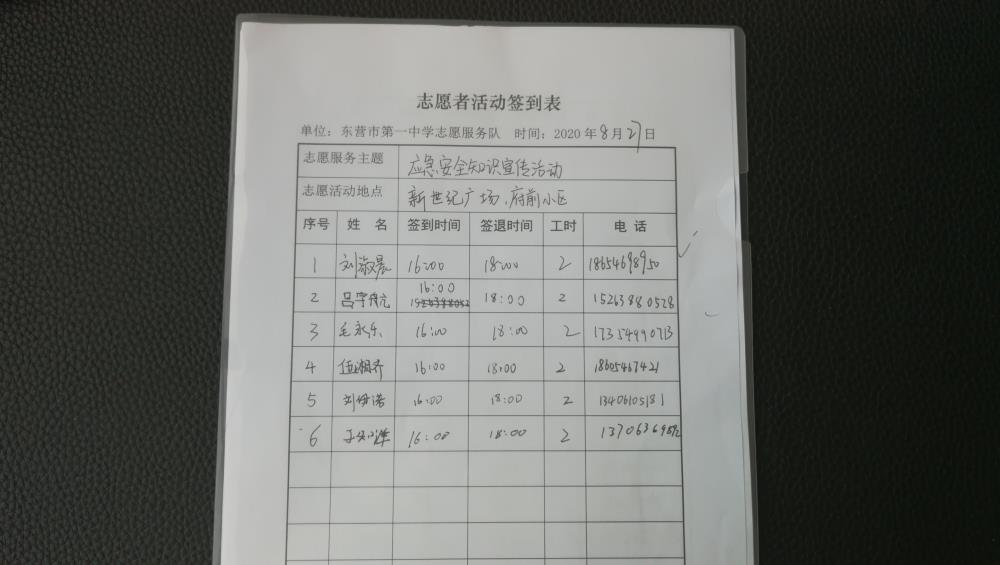 志愿者活动签到表
单位：东营市第一中学志愿服务队 时间：2020年8月27日
志愿服务主题 应急安全知识宣传活动
志愿活动地点 新世纪广场，府前小区
序号 姓名 签到时间 签退时间 工时 电话
1 刘淑晨 16:00 18:00 2 18654698950
2 16:00 18:00 2 15263880528
3 毛永乐 16:00 18:00 2 17354990713
4 伍湘齐 16:00 18:00 2 18605467421
5 刘伊诺 16:00 18:00 2 13406105181
6 16:00 18:00 2